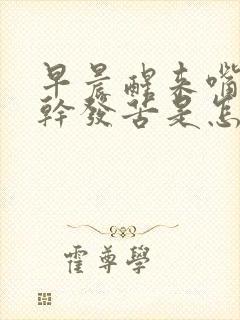 早晨醒来嘴
幹發苦是怎
霍尊學